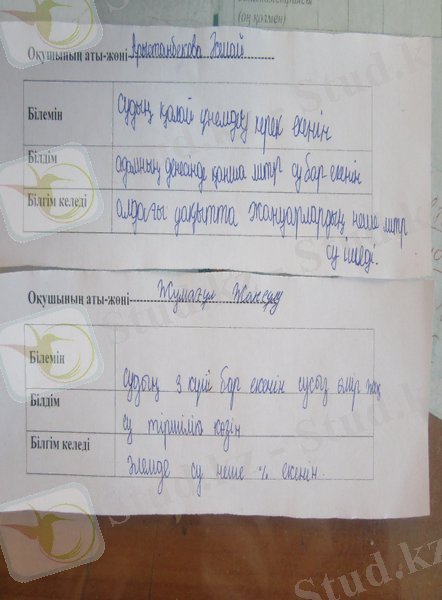 (оң қолмен)
Оқушының аты-жөні- Арыстанбекова
Білемін
судың қалай үнемдеу керек екенін
Білдім
адамның денесінде қанша литр су бар екенін
Білгім келеді
алдағы уақытта жануарлардың неше литр
су ішеді.
Оқушының аты-жөні- Жумагул Жансулу
Білемін
судың 3 күйі бар екенін сусыз өмір жоқ
Білдім
су тіршілік көзін
Білгім келеді
Әлемде су неше % екенін.
Stud.kz